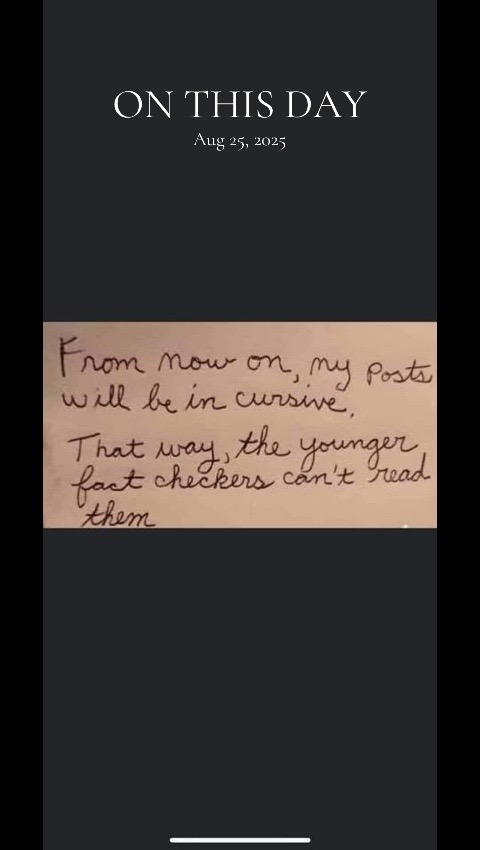 ON THIS DAY
Aug 25, 2025
From now on, my posts
will be in cursive.
That way, the younger
fact checkers can't read
them